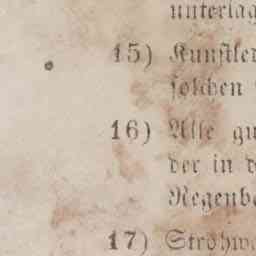 unterlag
15) Kunstler
solchen
16) Alle gu
der in d
Regenbo
17) Strohwa